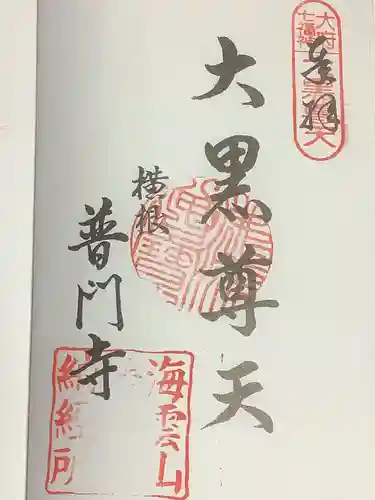 奉拝
大府
七福神
大黒天
大黒尊天
横根
普門寺
海雲山
納経所